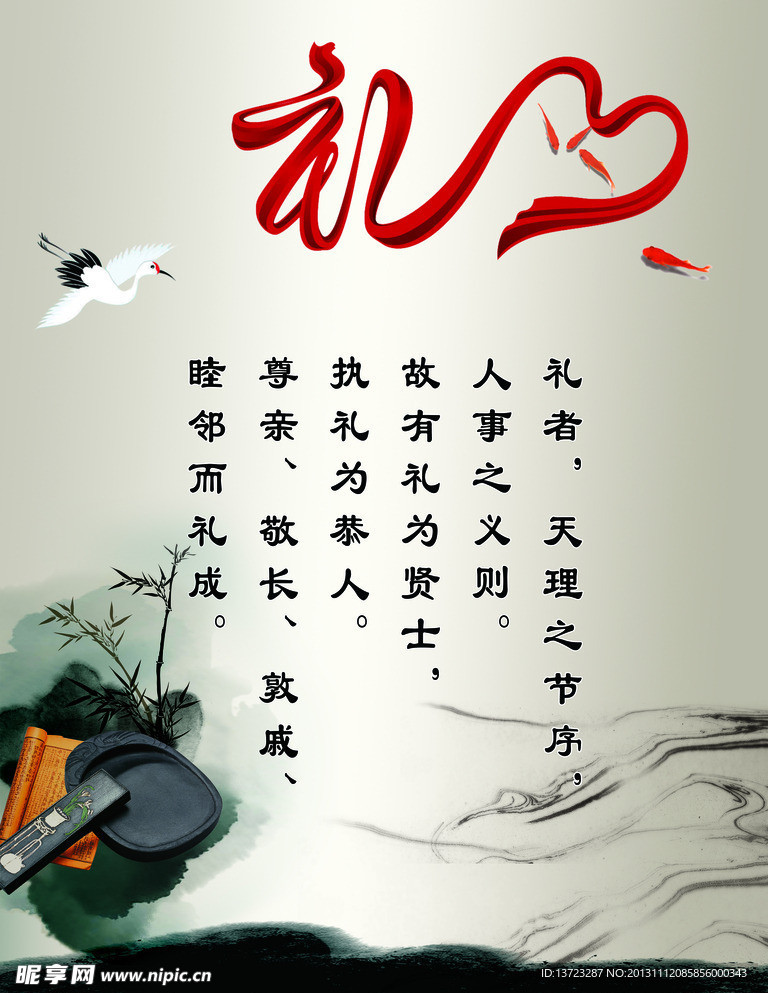 礼
礼者，天理之节序，
人事之义则。
故有礼为贤士，
执礼为恭人。
尊亲、敬长、敦戚、
睦邻而礼成。
昵享网 www.nipic.cn
ID:13723287 NO:20131112085856000343